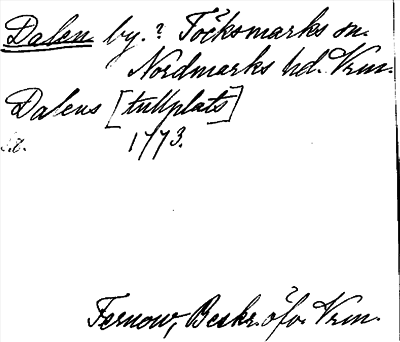 Dalen by.? Töcksmarks sn.
Nordmarks hd. Vrm.
Dalens [tullplats]
1773.
Fernow, Beskr. öfv. Vrm.